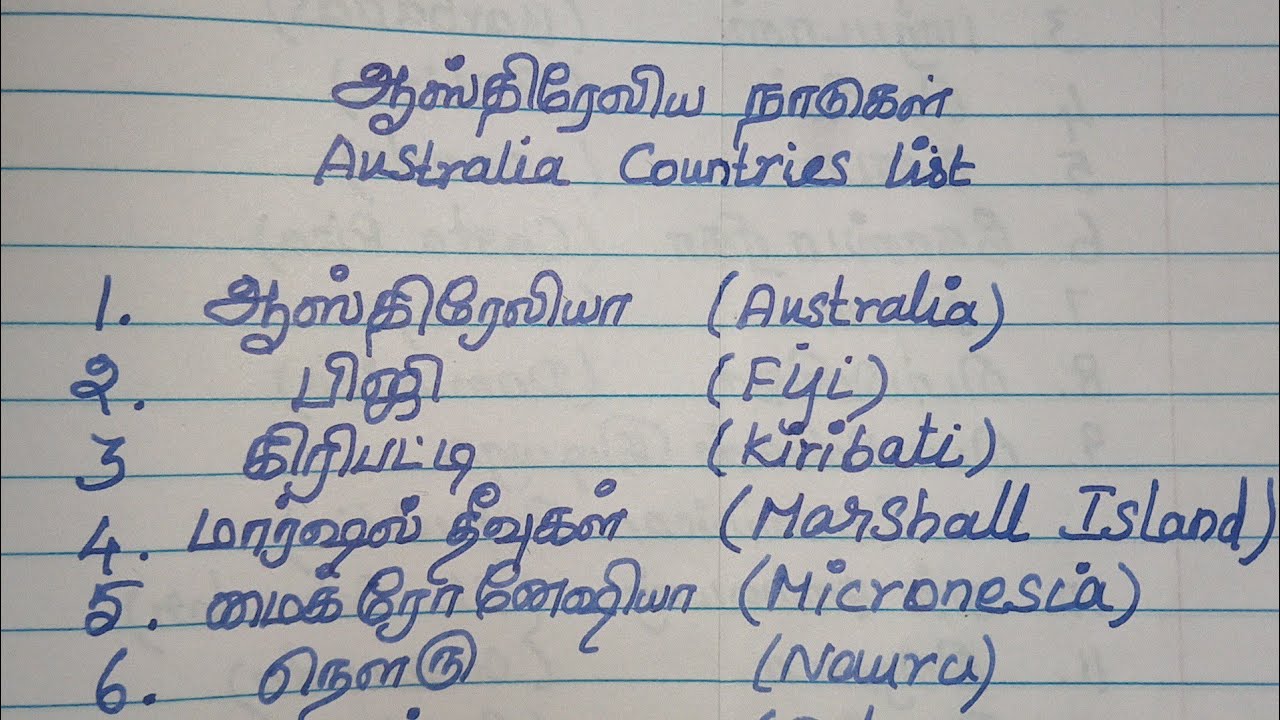 ஆஸ்திரேலிய நாடுகள்
Australia Countries List
1. ஆஸ்திரேலியா (Australia)
2. பிஜி (Fiji)
3 கிரிபட்டி (Kiribati)
4. மார்ஷல் தீவுகள் (Marshall Island)
5. மைக்ரோனேஷியா (Micronesia)
6. நௌரு (Nauru)